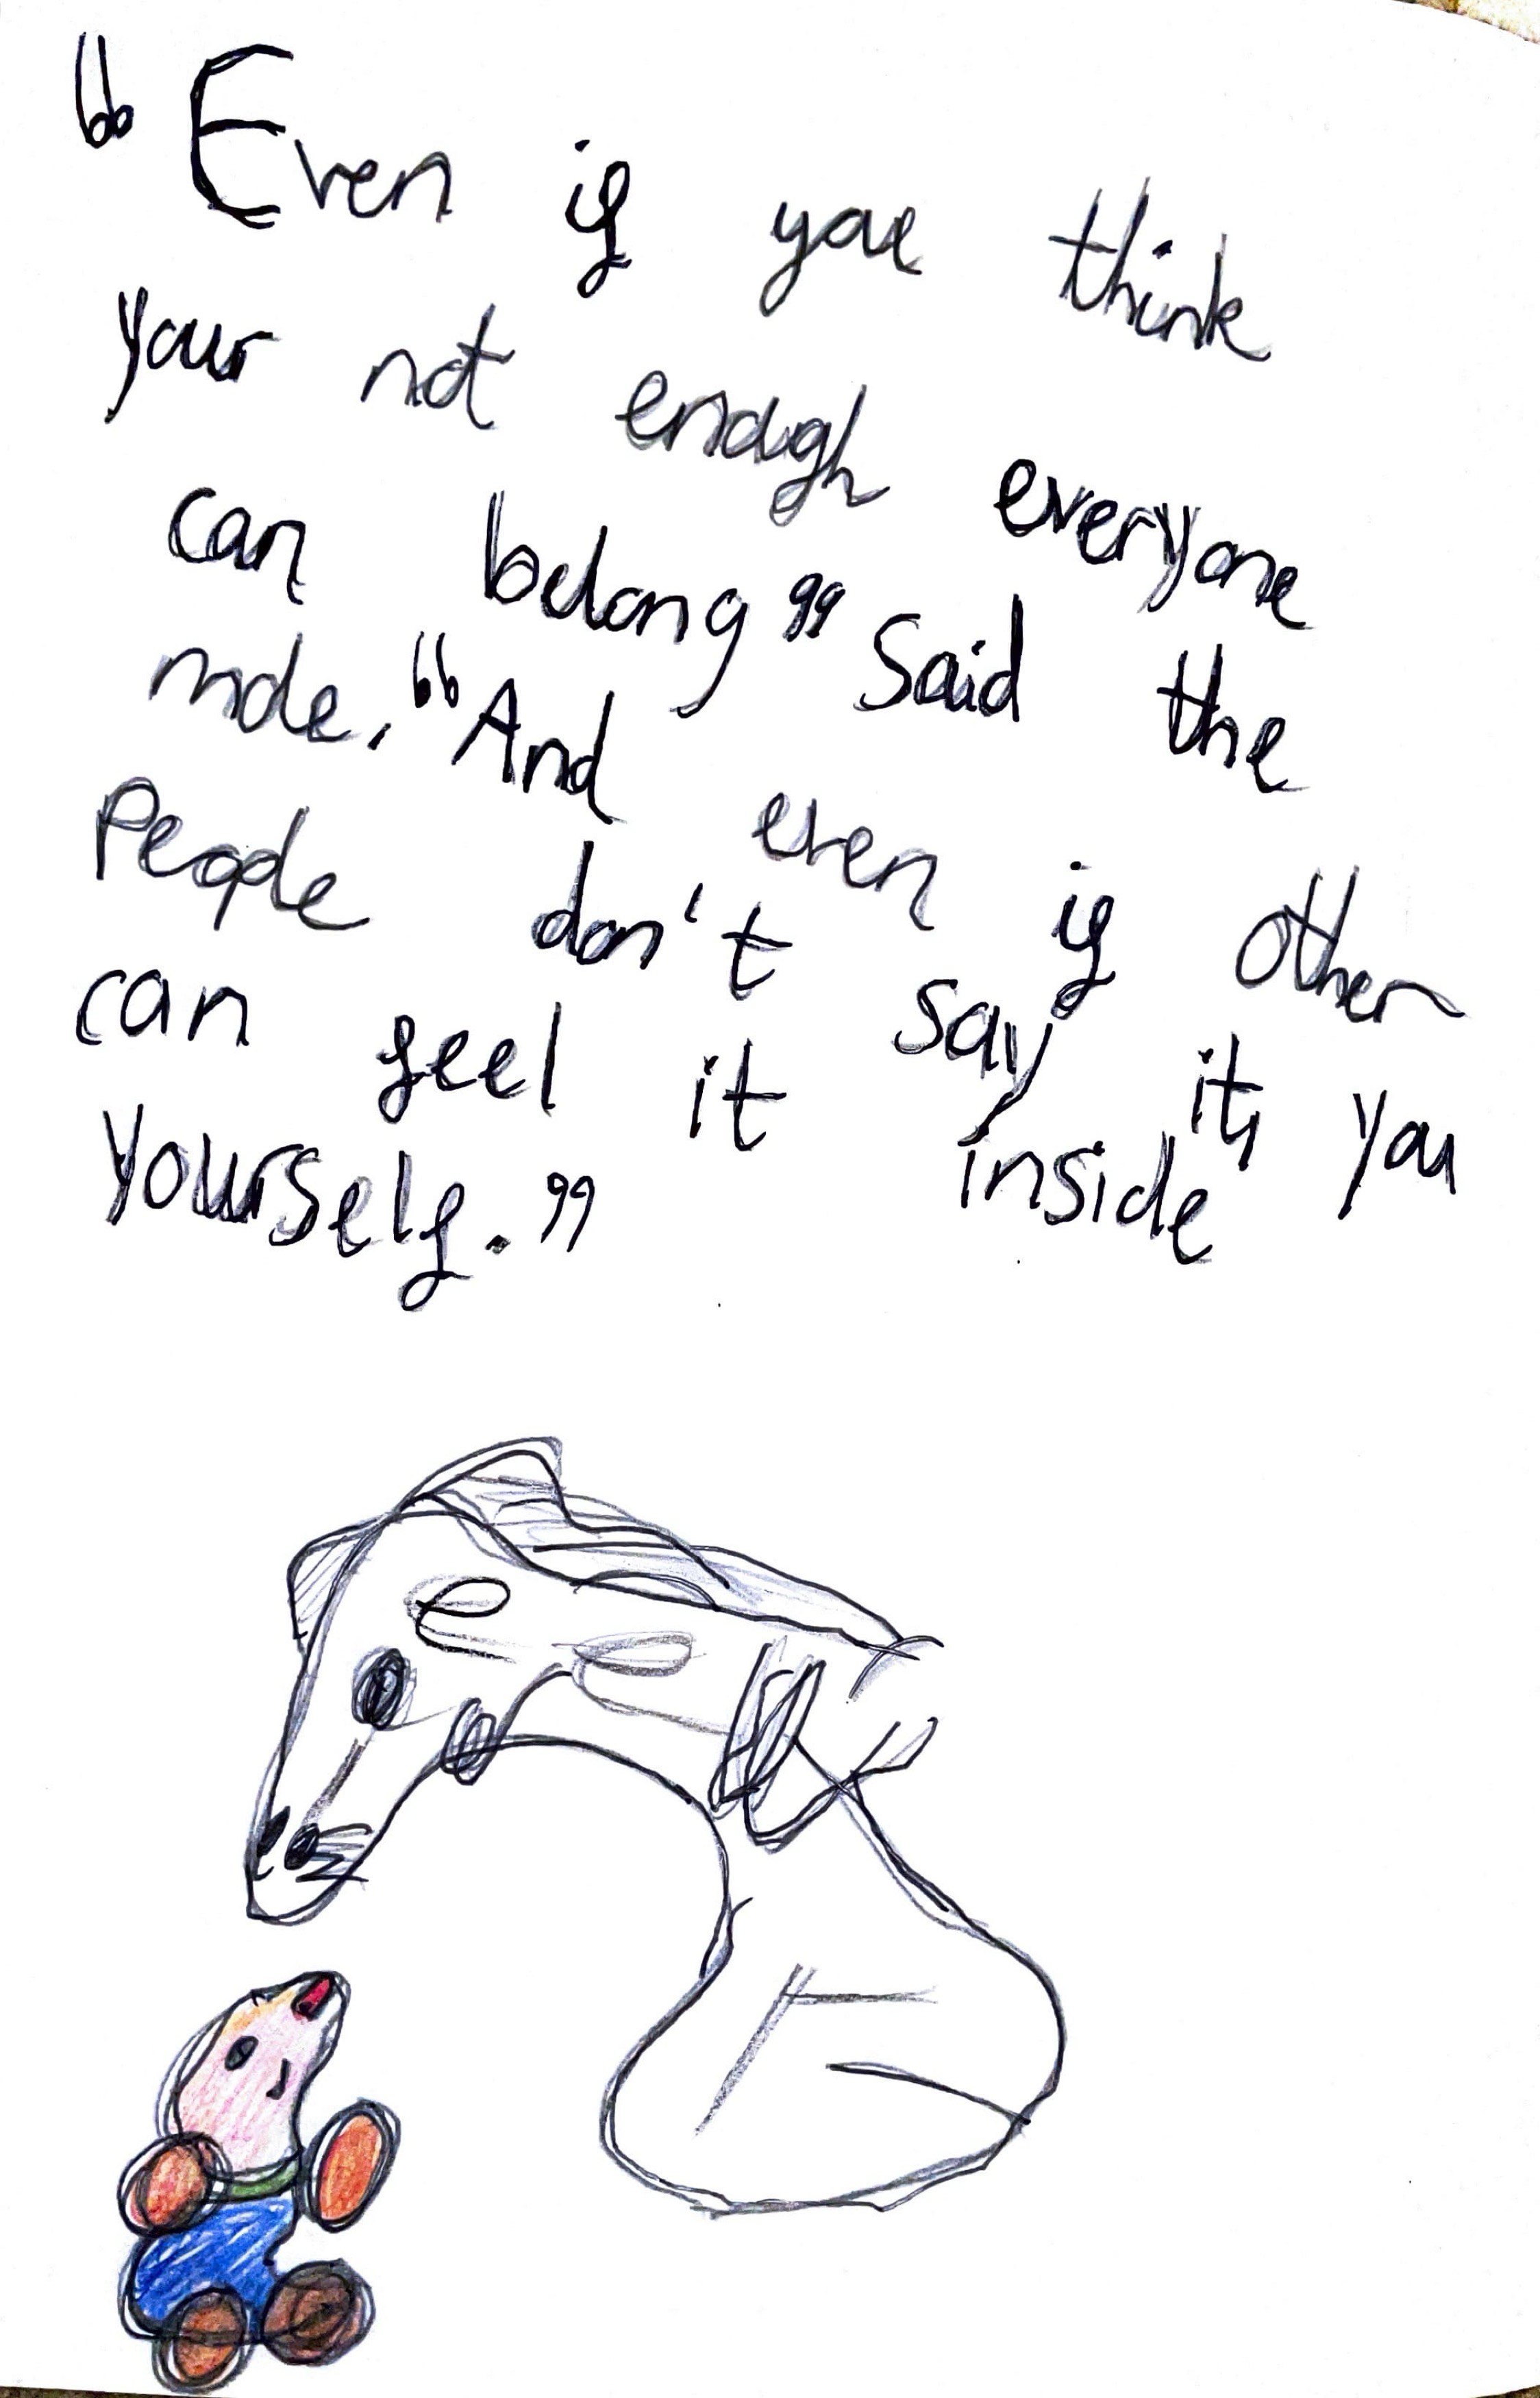 “Even if you think
your not enough everyone
can belong” said the
mole. “And even if other
People don't say it, you
can feel it inside
yourself.”